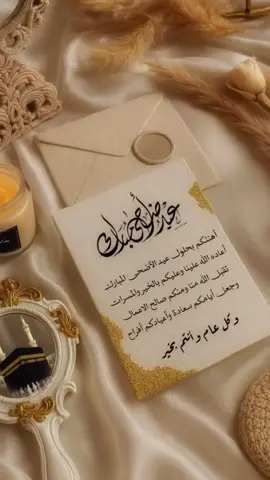 عيد أضحى مبارك
أهنئكم بحلول عيد الأضحى المبارك
أعاده الله علينا وعليكم بالخير والمسرات
تقبل الله منا ومنكم صالح الاعمال
وجعل أيامكم سعادة وأعيادكم أفراح
وكل عام وأنتم بخير